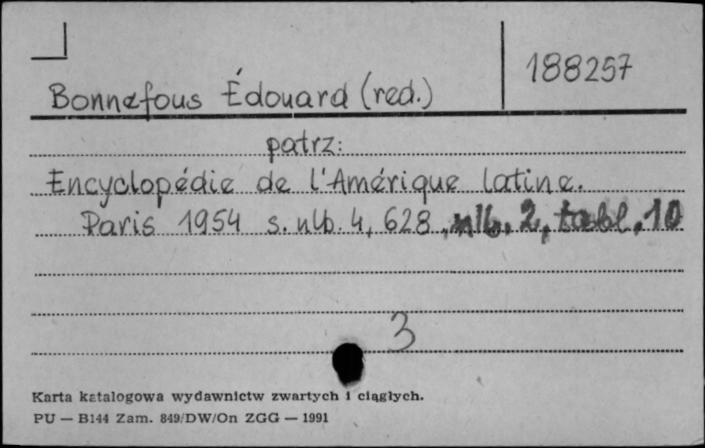 188257
Bonnefous Édouard (red.)
patrz:
Encyclopédie de l'Amérique latine.
Paris 1954 s. nlb. 4, 628, nlb. 2, tabl. 10
3
Karta katalogowa wydawnictw zwartych i ciągłych.
PU — B144 Zam. 849/DW/On ZGG — 1991